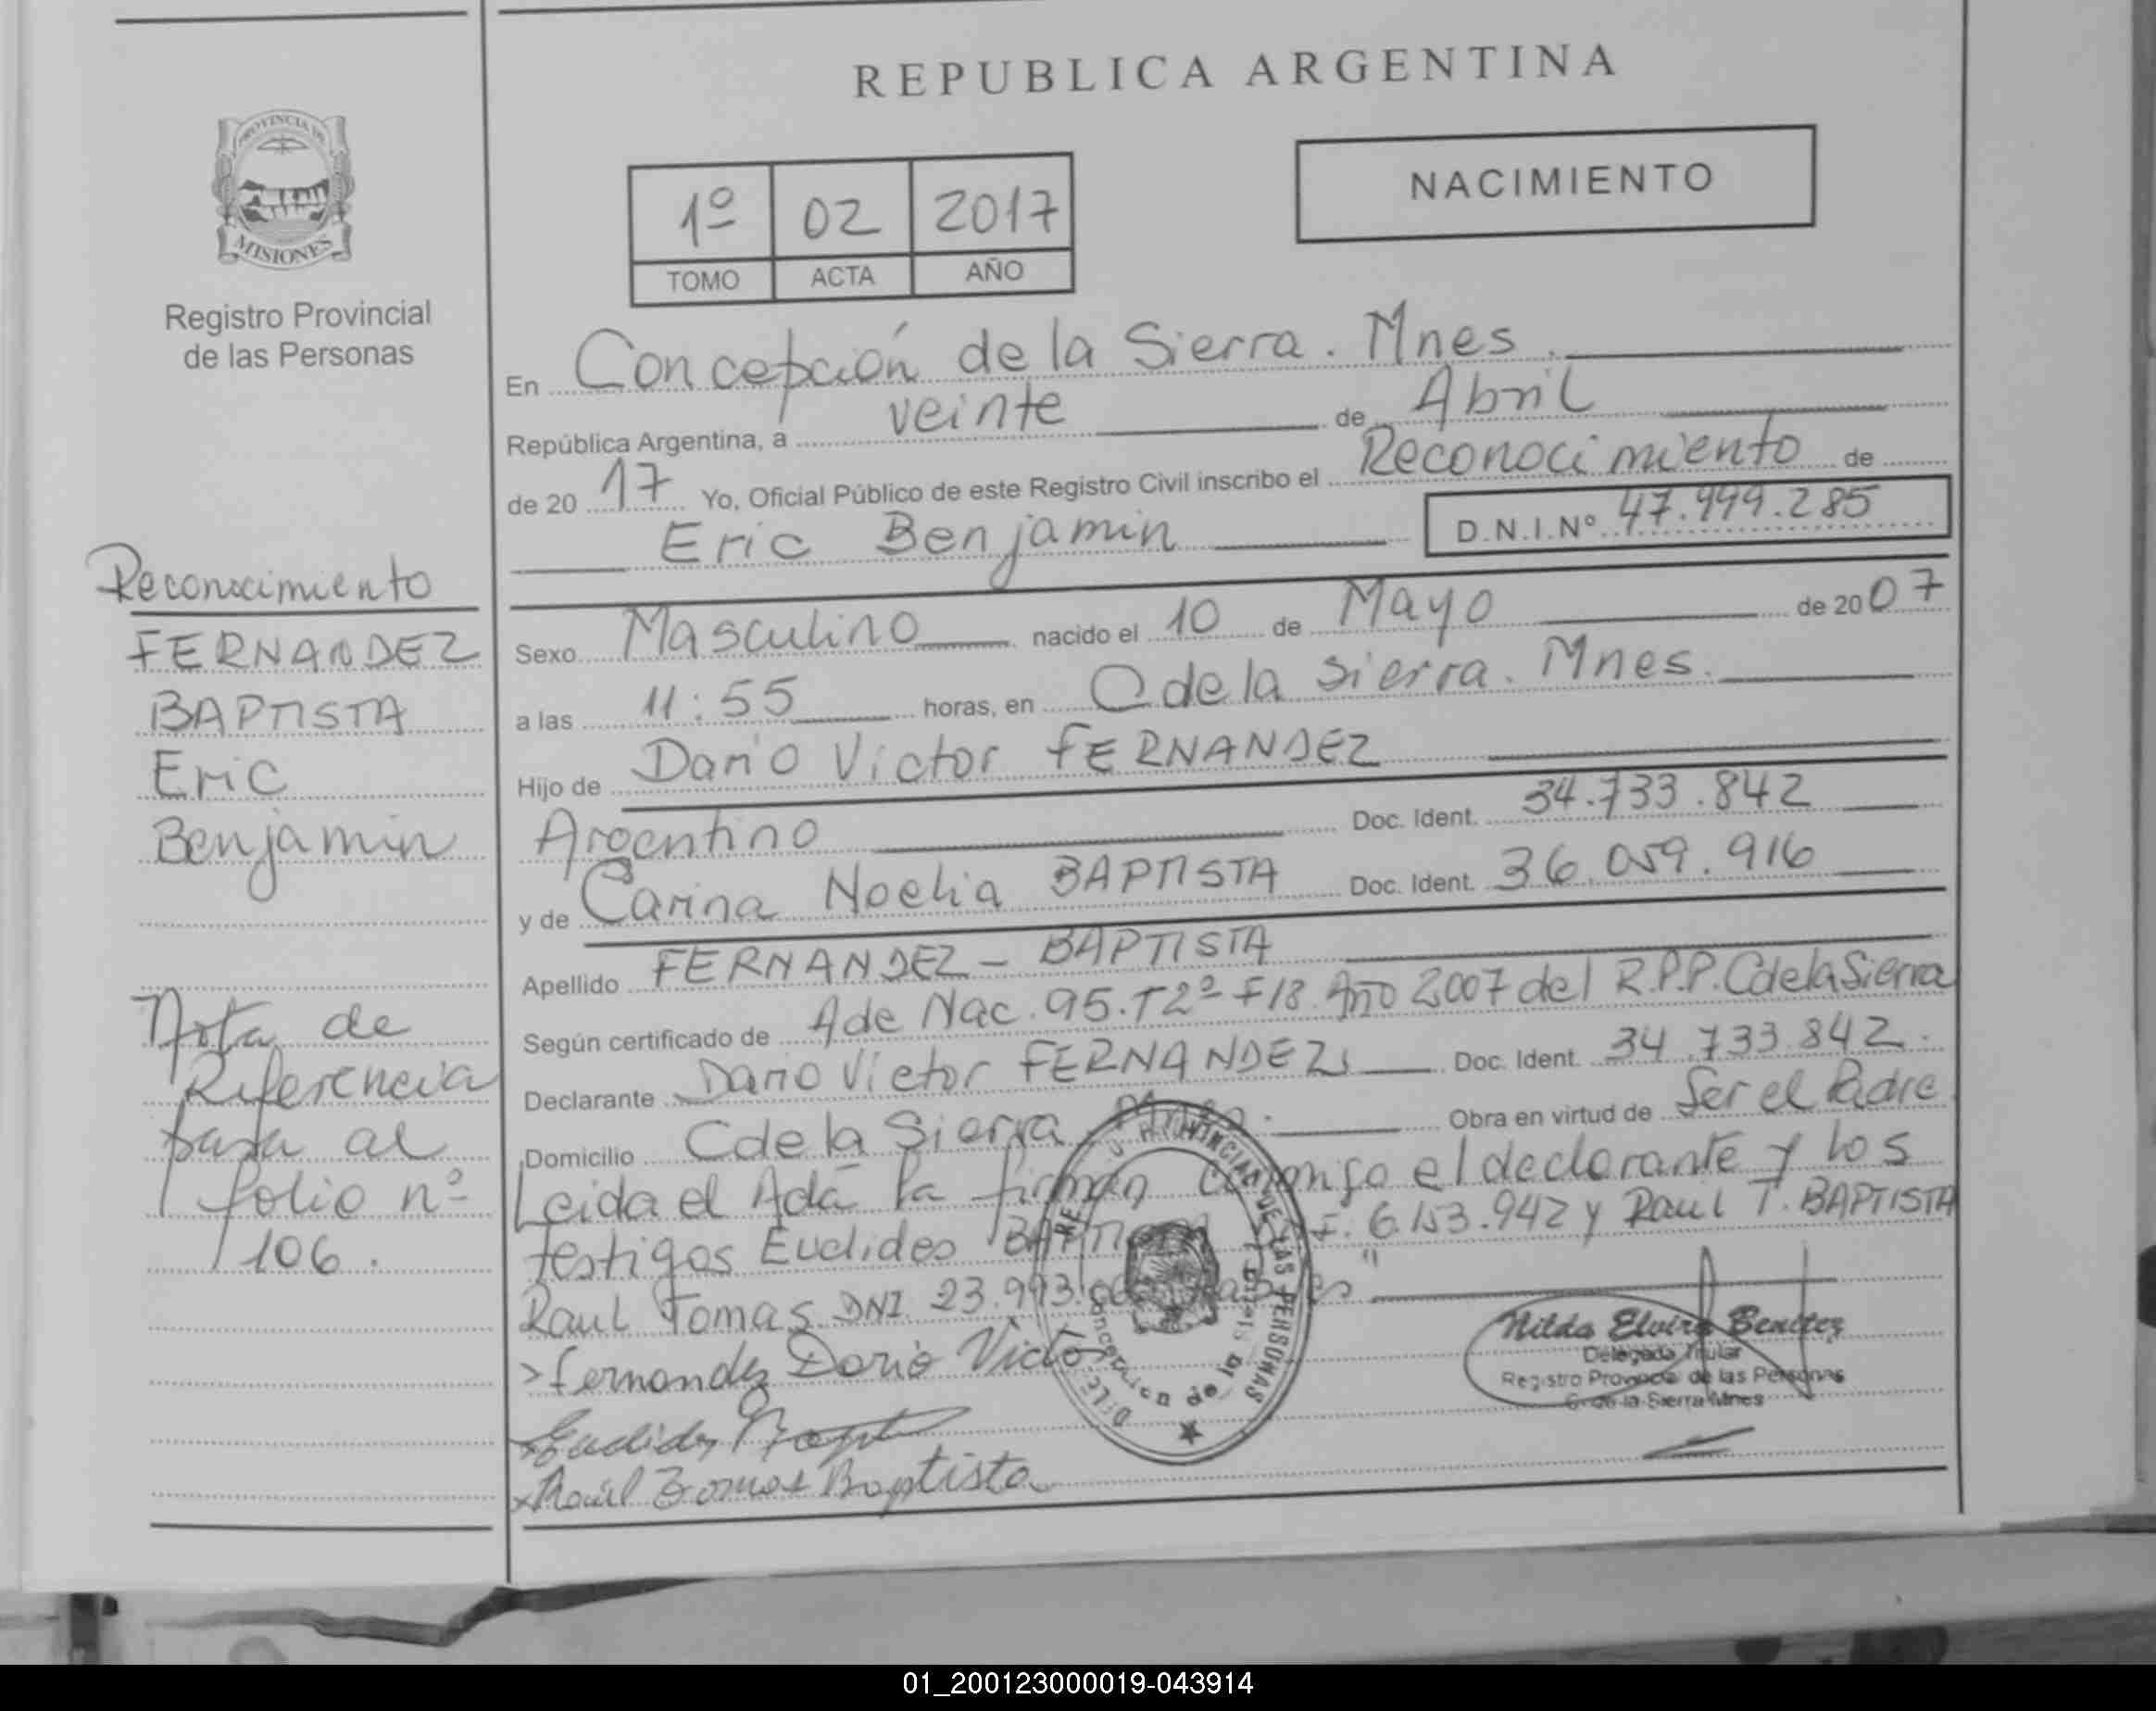 REPUBLICA ARGENTINA
PROVINCIA DE
MISIONES
Registro Provincial
de las Personas
NACIMIENTO
1º 02 2017
TOMO ACTA AÑO
En Concepción de la Sierra. Mnes.
República Argentina, a veinte de Abril
de 2017 Yo, Oficial Público de este Registro Civil inscribo el Reconocimiento de
Eric Benjamin D.N.I.Nº 47.999.285
Sexo Masculino nacido el 10 de Mayo de 2007
a las 11:55 horas, en C de la Sierra. Mnes.
Hijo de Dario Victor FERNANDEZ
Argentino Doc. Ident. 34.733.842
y de Carina Noelia BAPTISTA Doc. Ident. 36.059.916
Apellido FERNANDEZ - BAPTISTA
Según certificado de A de Nac. 95. T2º F18 Año 2007 del R.P.P. C de la Sierra
Declarante Dario Victor FERNANDEZ Doc. Ident. 34.733.842.
Domicilio C de la Sierra Obra en virtud de Ser el Padre
Leida el Acta la firman conmigo el declarante y los
testigos Euclides 6.153.942 y Raul T. BAPTISTA
Raul Tomas DNI. 23.993.
Fernandez Dario Victo
Euclides
Raúl Tomas Baptista
Reconocimiento
FERNANDEZ
BAPTISTA
Eric
Benjamin
Nota de
Referencia
pasa al
folio nº
106.
Nilda Elvira Benitez
Delegada Titular
Registro Provincial de las Personas
C. de la Sierra Mnes
01_200123000019-043914